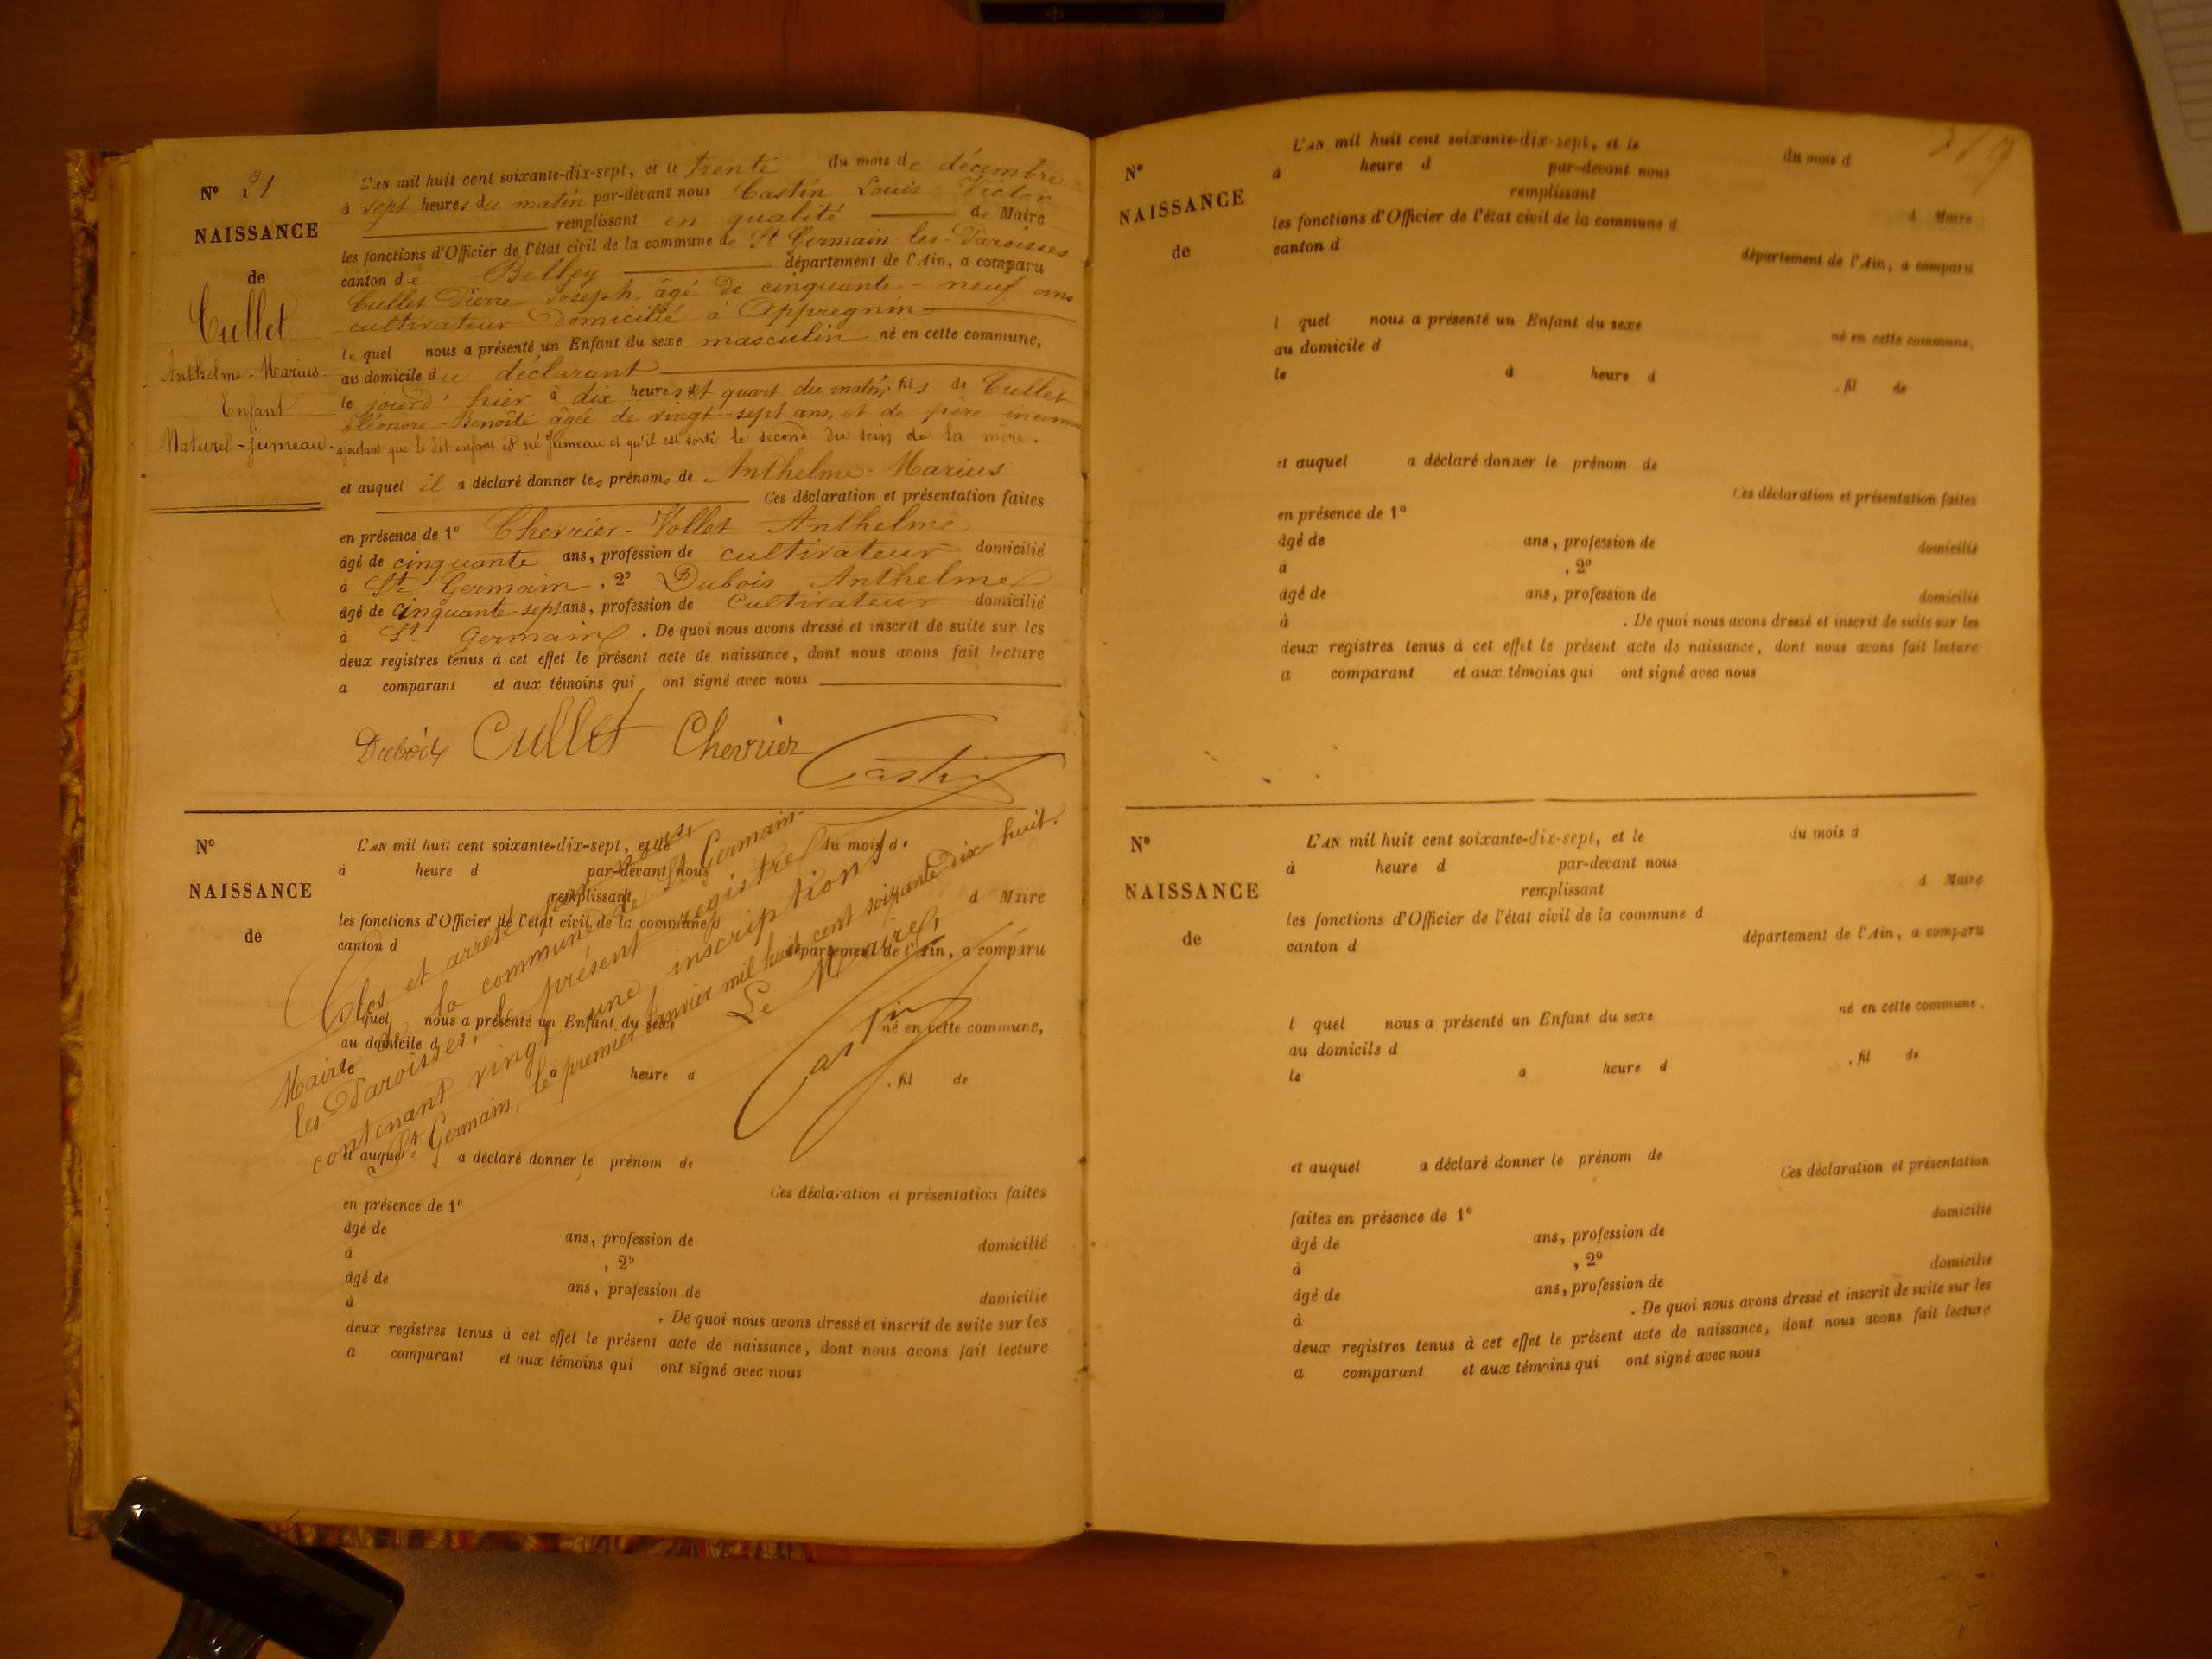 N° 21
NAISSANCE
de
Cullet
Anthelme-Marius
Enfant
Naturel-jumeau.
L'AN mil huit cent soixante-dix-sept, et le trente du mois de décembre
à sept heures du matin par-devant nous Castin Louis-Victor
remplissant en qualité de Maire
les fonctions d'Officier de l'état civil de la commune de St Germain-les-Paroisses
canton de Belley département de l'Ain, a comparu
Cullet Pierre Joseph, âgé de cinquante-neuf ans
cultivateur domicilié à Appregnin
lequel nous a présenté un Enfant du sexe masculin né en cette commune,
au domicile du déclarant
le jourd'hier à dix heures et quart du matin, fils de Cullet
Eléonore-Benoîte âgée de vingt-sept ans, et de père inconnu
ajoutant que le dit enfant est né Jumeau et qu'il est sorti le second du sein de la mère.
et auquel il a déclaré donner les prénoms de Anthelme-Marius
Ces déclaration et présentation faites
en présence de 1° Chevrier-Vollet Anthelme
âgé de cinquante ans, profession de cultivateur domicilié
à St Germain, 2° Dubois Anthelme
âgé de cinquante-sept ans, profession de cultivateur domicilié
à St Germain. De quoi nous avons dressé et inscrit de suite sur les
deux registres tenus à cet effet le présent acte de naissance, dont nous avons fait lecture
a comparant et aux témoins qui ont signé avec nous
Dubois Cullet Chevrier Castin
N°
NAISSANCE
de
L'AN mil huit cent soixante-dix-sept, et le du mois d
à heure d par-devant nous
remplissant d Maire
les fonctions d'Officier de l'état civil de la commune d
canton d département de l'Ain, a comparu
l quel nous a présenté un Enfant du sexe né en cette commune,
au domicile d
le à heure d , fil de
et auquel a déclaré donner le prénom de
Ces déclaration et présentation faites
en présence de 1°
âgé de ans, profession de domicilié
à , 2°
âgé de ans, profession de domicilié
à . De quoi nous avons dressé et inscrit de suite sur les
deux registres tenus à cet effet le présent acte de naissance, dont nous avons fait lecture
a comparant et aux témoins qui ont signé avec nous
Clos et arrêté par nous,
Maire de la commune de St Germain-
les-Paroisses, le présent registre
contenant vingt une inscriptions.
St Germain, le premier Janvier mil huit cent soixante-dix-huit.
Le Maire,
Castin
N°
NAISSANCE
de
L'AN mil huit cent soixante-dix-sept, et le du mois d
à heure d par-devant nous
remplissant d Maire
les fonctions d'Officier de l'état civil de la commune d
canton d département de l'Ain, a comparu
l quel nous a présenté un Enfant du sexe né en cette commune,
au domicile d
le à heure d , fil de
et auquel a déclaré donner le prénom de
Ces déclaration et présentation faites
en présence de 1°
âgé de ans, profession de domicilié
à , 2°
âgé de ans, profession de domicilié
à . De quoi nous avons dressé et inscrit de suite sur les
deux registres tenus à cet effet le présent acte de naissance, dont nous avons fait lecture
a comparant et aux témoins qui ont signé avec nous
N°
NAISSANCE
de
L'AN mil huit cent soixante-dix-sept, et le du mois d
à heure d par-devant nous
remplissant d Maire
les fonctions d'Officier de l'état civil de la commune d
canton d département de l'Ain, a comparu
l quel nous a présenté un Enfant du sexe né en cette commune,
au domicile d
le à heure d , fil de
et auquel a déclaré donner le prénom de
Ces déclaration et présentation
faites en présence de 1° domicilié
âgé de ans, profession de
à , 2° domicilié
âgé de ans, profession de
à . De quoi nous avons dressé et inscrit de suite sur les
deux registres tenus à cet effet le présent acte de naissance, dont nous avons fait lecture
a comparant et aux témoins qui ont signé avec nous